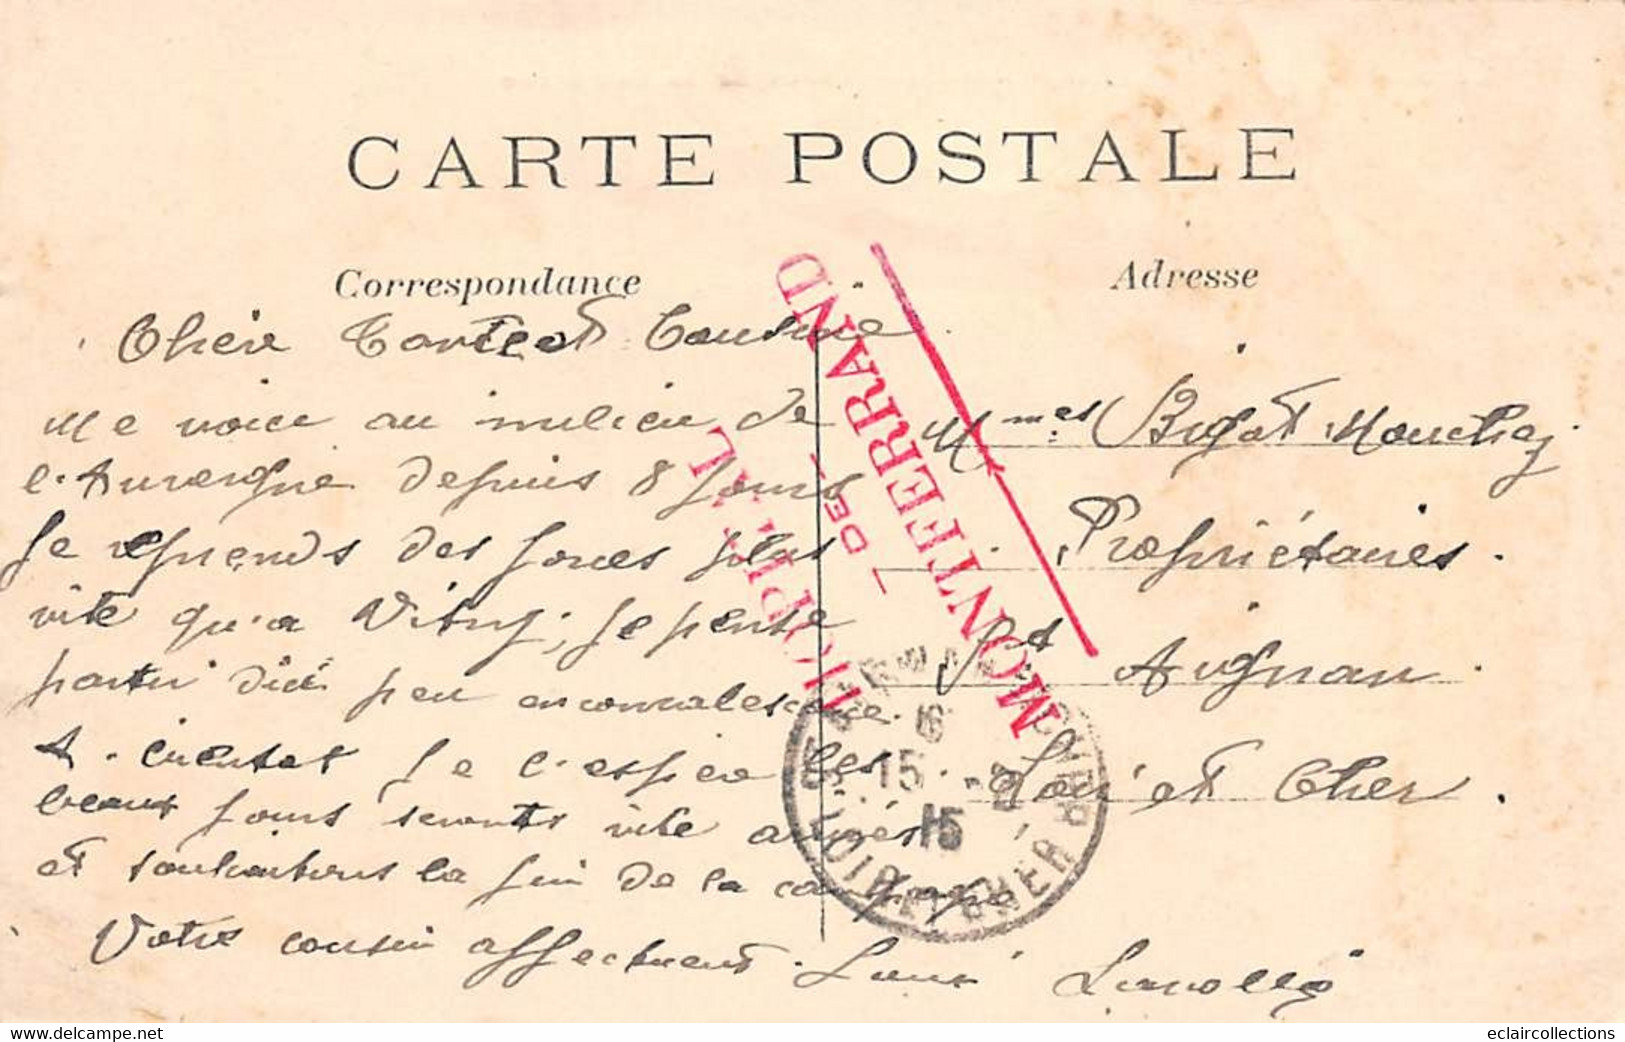 CARTE POSTALE
Correspondance
Adresse
Chère Tante et Cousine
Me voici au milieu de
l'Auvergne depuis 8 jours
Je reprends des forces plus
vite qu'a Vitry, je pense
partir d'ici peu en convalescence.
les
beaux jours seront vite arrivés
et souhaitons la fin de la campagne
Votre cousin affectueux. Louis
Mmes Bigot Mouchez
Propriétaires.
St Aignan.
Loir et Cher.
HOPITAL
- DE -
MONTFERRAND
15
15
LOIR ET CHER
eclaircollections
www.delcampe.net